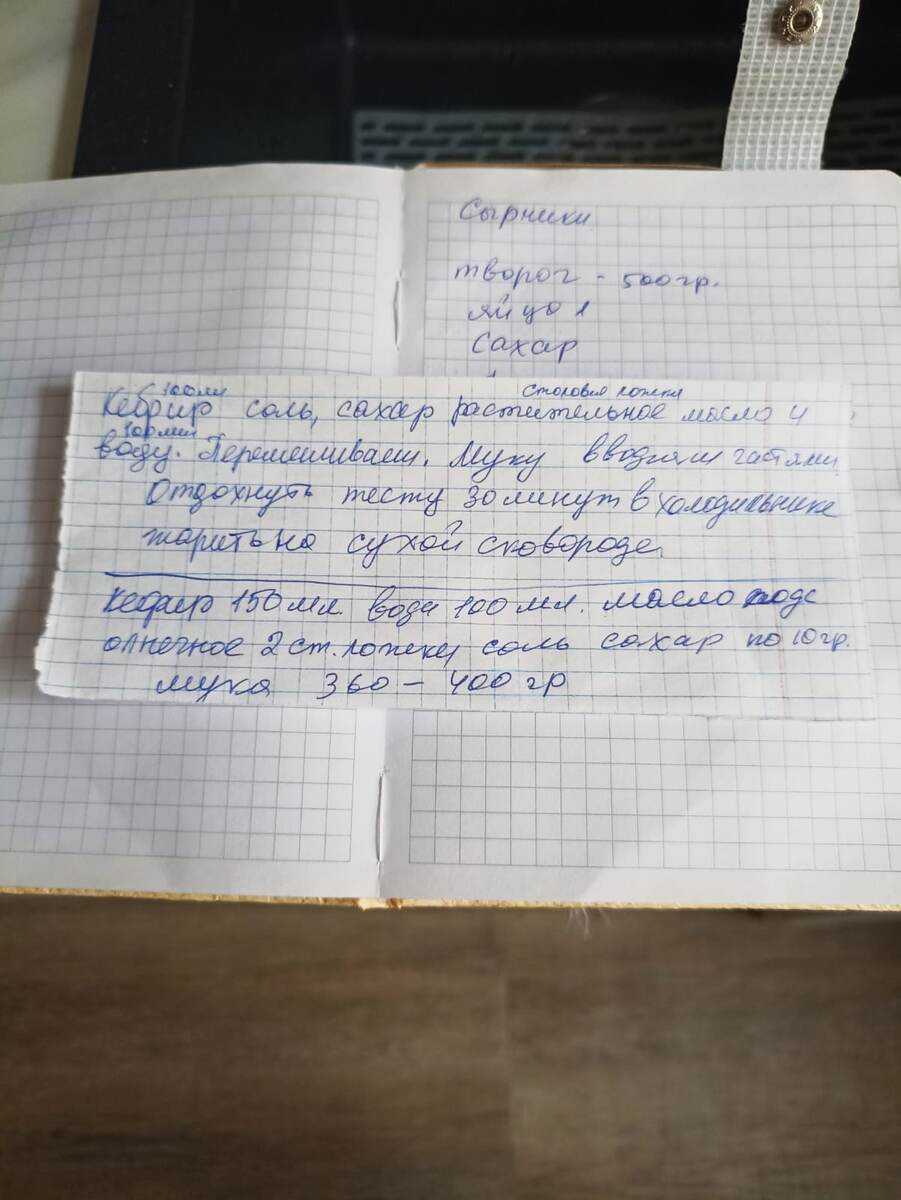 Сырники
творог - 500 гр.
яйцо 1
Сахар
100 мл столовая ложка
Кефир соль, сахар растительное масло и
воду. Перемешиваем. Муку вводим частями
Отдохнуть тесту 30 минут в холодильнике
жарить на сухой сковороде
Кефир 150 мл. вода 100 мл. масло подс
олнечное 2 ст. ложки соль сахар по 10 гр.
мука 360 - 400 гр